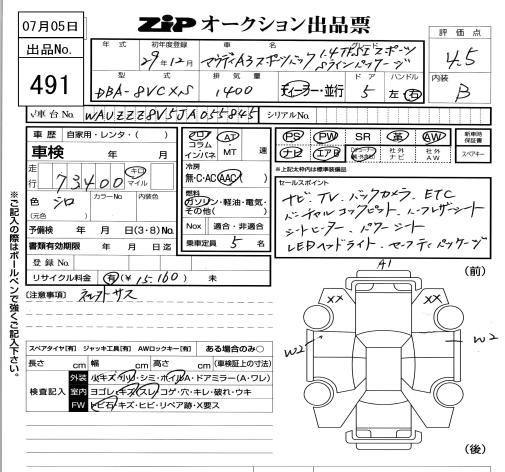 07月05日
ZiP オークション出品票
出品No.
491
年式 初年度登録 車名 グレード
29年12月 アウディA3スポーツバック 1.4TFSIスポーツ
Sラインパッケージ
評価点
4.5
内装
B
型式 排気量 ドア ハンドル
DBA-8VCXS 1400 ディーラー・並行 5 左 右
√車台No. WAUZZZ8V5JA055845 シリアルNo.
車歴 自家用・レンタ・( )
車検 年 月
走行 73400 キロ マイル
色 シロ カラーNo 内装色
(元色)
予備検 年 月 日(3・8)No.
書類有効期限 年 月 日迄
登録No.
リサイクル料金 有(¥15.160) 未
フロア AT
コラム ・ 速
インパネ MT
冷房
無・C・AC AAC
燃料
ガソリン・軽油・電気・
その他( )
Nox 適合・非適合
乗車定員 5 名
PS PW SR 革 AW
ナビ エアB 社外ナビ 社外AW
新車時保証書
スペアキー
※上記太枠内は標準装備品
セールスポイント
ナビ、TV、バックカメラ、ETC
バーチャルコックピット、ハーフレザーシート
シートヒーター、パワーシート
LEDヘッドライト、セーフティパッケージ
※ご記入の際はボールペンで強くご記入下さい。
[注意事項]
A1
(前)
XX XX
W2 W2
(後)
スペアタイヤ[有] ジャッキ工具[有] AWロックキー[有] ある場合のみ○
長さ cm 幅 cm 高さ cm (車検証上の寸法)
検査記入
外装 小キズ・小U・シミ・ホイルA・ドアミラー(A・ワレ)
室内 ヨゴレ・キズ・スレ・コゲ・穴・キレ・破れ・ウキ
FW トビ石・キズ・ヒビ・リペア跡・X要ス